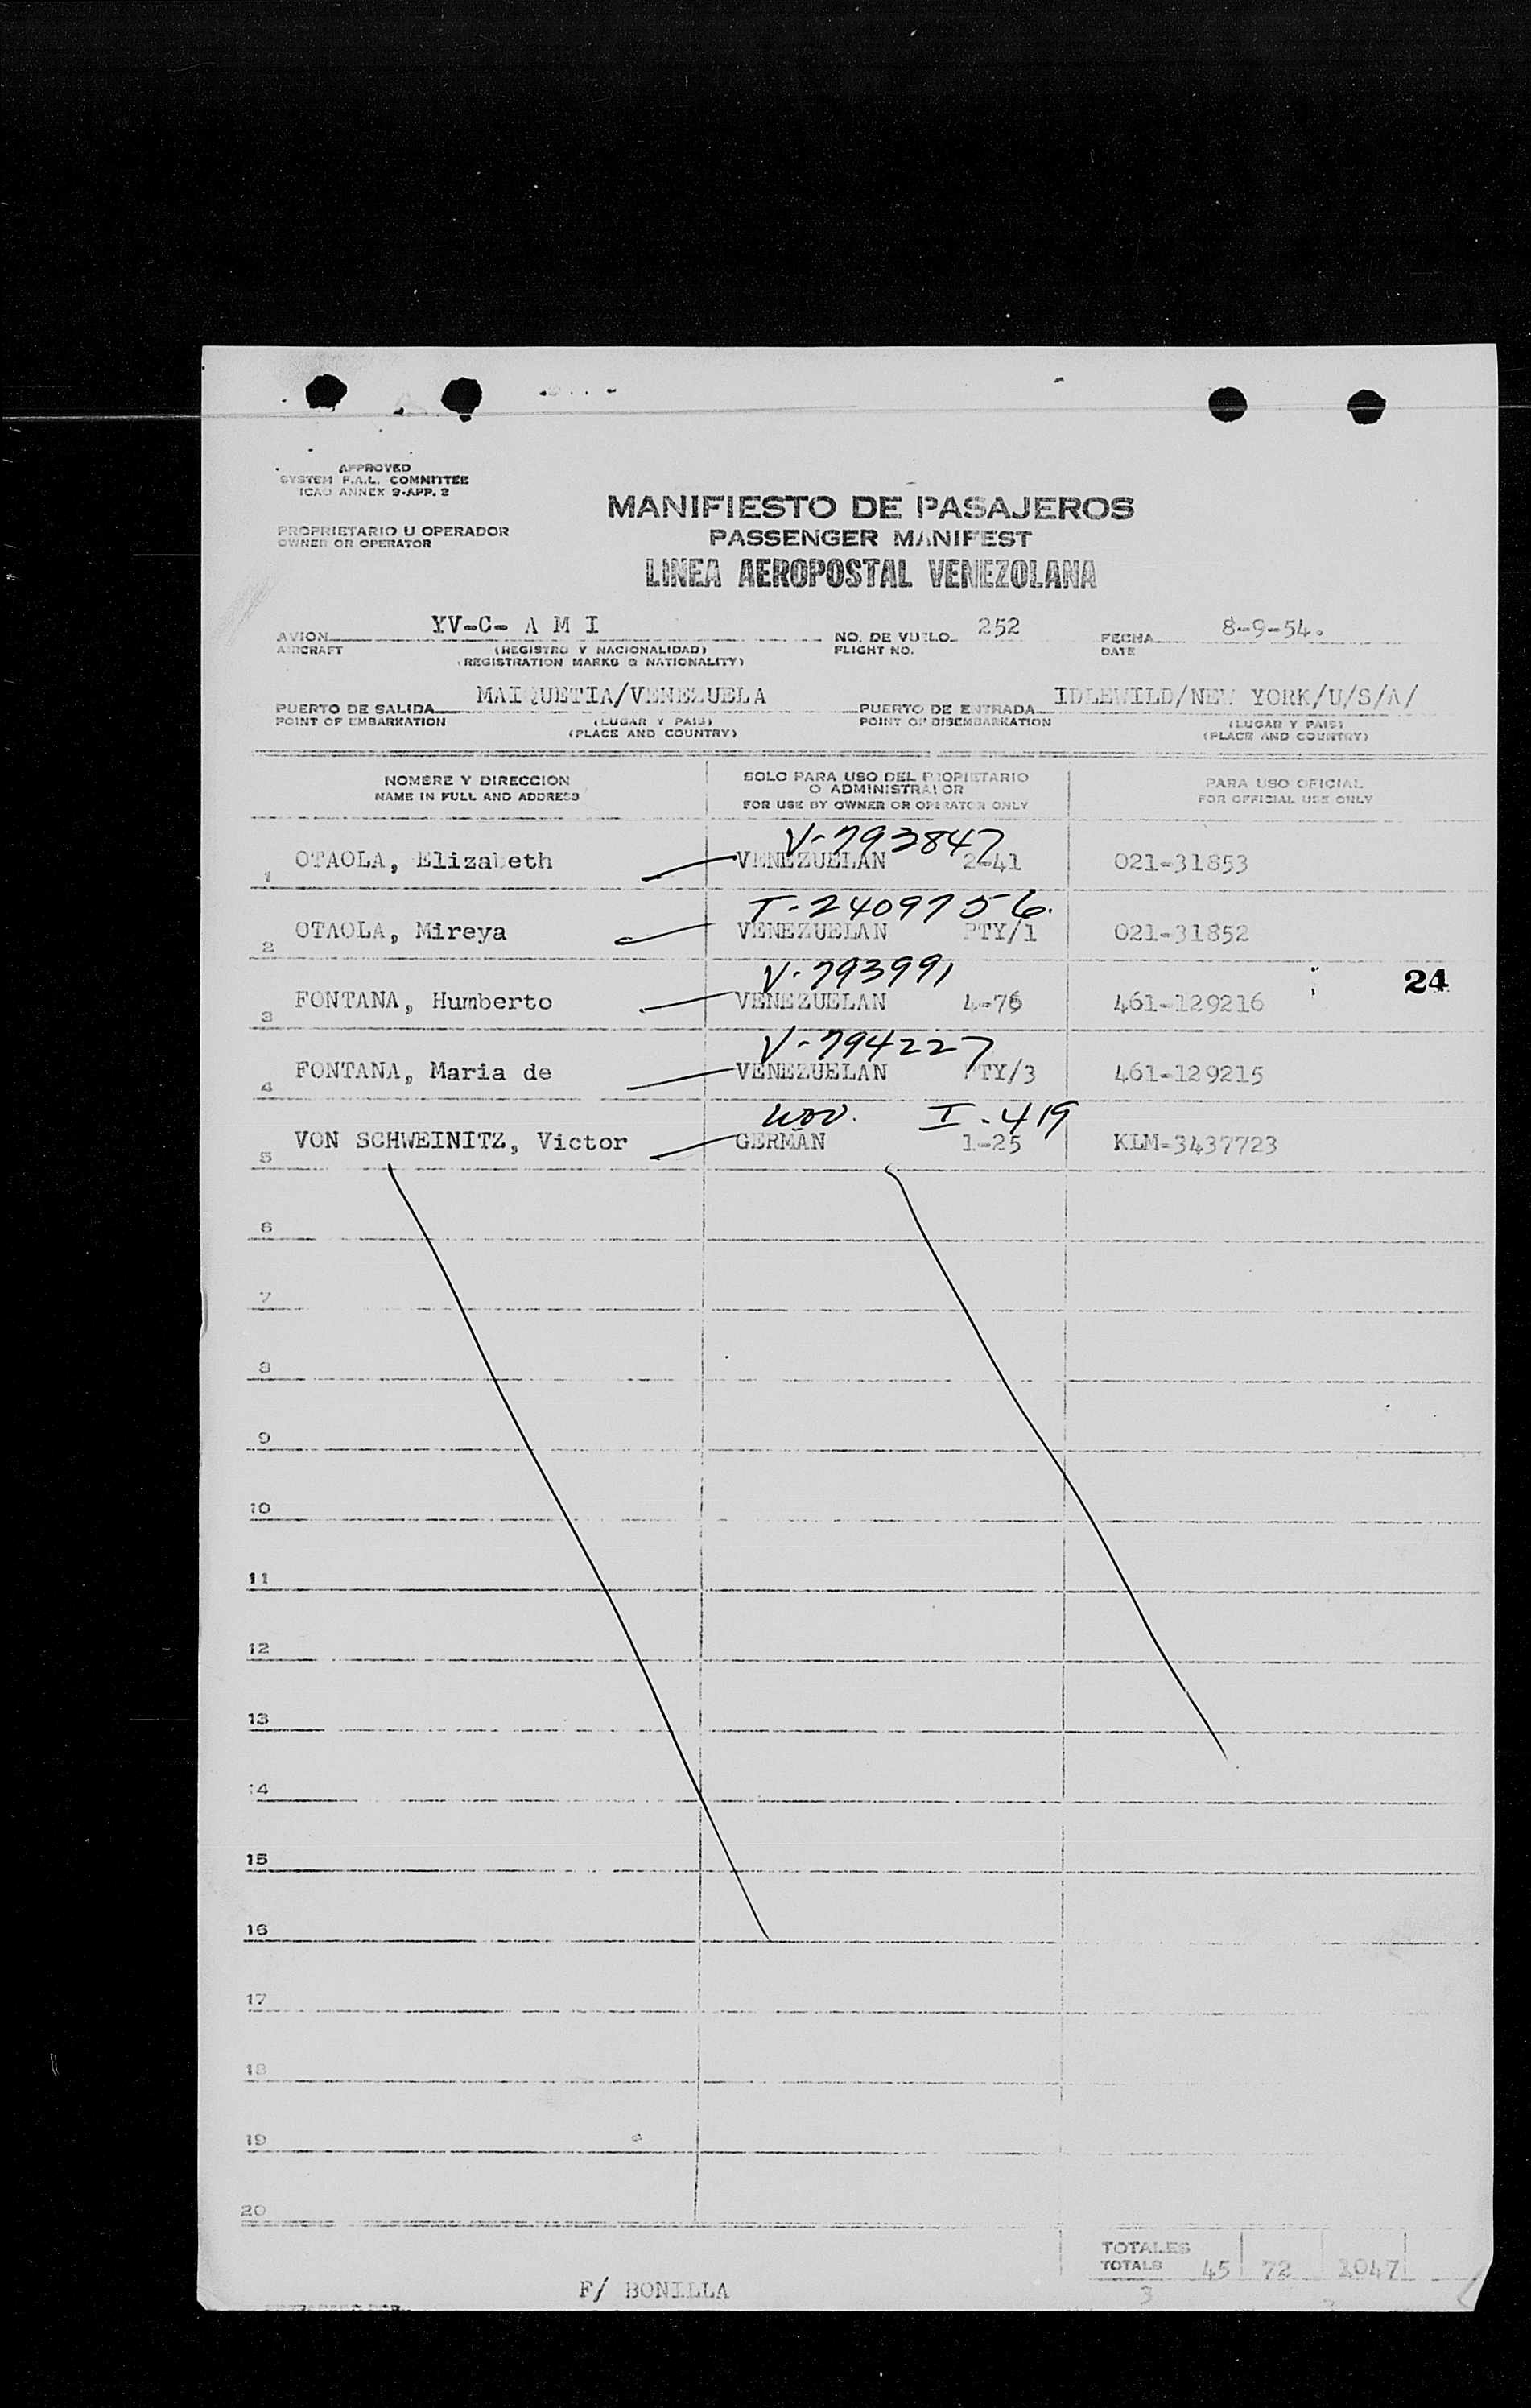 APPROVED
SYSTEM F.A.L. COMMITTEE
ICAO ANNEX 9-APP. 2
MANIFIESTO DE PASAJEROS
PROPRIETARIO U OPERADOR
OWNER OR OPERATOR
PASSENGER MANIFEST
LINEA AEROPOSTAL VENEZOLANA
AVION YV-C- A M I NO. DE VUELO 252 FECHA 8-9-54.
AIRCRAFT (REGISTRO Y NACIONALIDAD) FLIGHT NO. DATE
(REGISTRATION MARKS & NATIONALITY)
PUERTO DE SALIDA MAIQUETIA/VENEZUELA PUERTO DE ENTRADA IDLEWILD/NEW YORK/U/S/A/
POINT OF EMBARKATION (LUGAR Y PAIS) POINT OF DISEMBARKATION (LUGAR Y PAIS)
(PLACE AND COUNTRY) (PLACE AND COUNTRY)
NOMBRE Y DIRECCION SOLO PARA USO DEL PROPIETARIO O ADMINISTRADOR PARA USO OFICIAL
NAME IN FULL AND ADDRESS FOR USE BY OWNER OR OPERATOR ONLY FOR OFFICIAL USE ONLY
V-793847
1 OTAOLA, Elizabeth VENEZUELAN 2-41 021-31853
T-2409756.
2 OTAOLA, Mireya VENEZUELAN PTY/1 021-31852
V-793991
24
3 FONTANA, Humberto VENEZUELAN 4-76 461-129216
V-794227
4 FONTANA, Maria de VENEZUELAN PTY/3 461-129215
I-419
5 VON SCHWEINITZ, Victor GERMAN 1-25 KLM-3437723
6
7
8
9
10
11
12
13
14
15
16
17
18
19
20
TOTALES
TOTALS 45 72 1047
3
F/ BONILLA